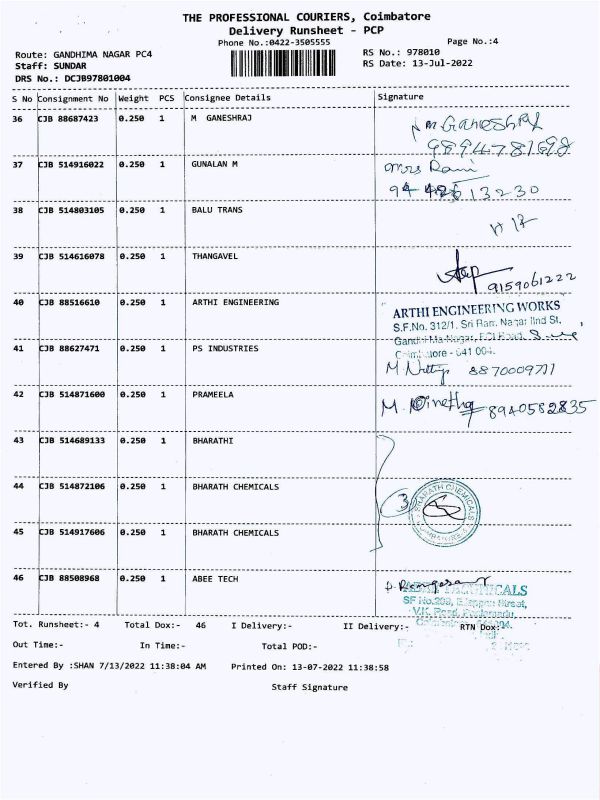 THE PROFESSIONAL COURIERS, Coimbatore
Delivery Runsheet - PCP
Phone No.:0422-3505555 Page No.:4
Route: GANDHIMA NAGAR PC4 RS No.: 978010
Staff: SUNDAR RS Date: 13-Jul-2022
DRS No.: DCJB97801004
S No Consignment No Weight PCS Consignee Details Signature
36 CJB 88687423 0.250 1 M GANESHRAJ M GANESHRAJ
9894781698
37 CJB 514916022 0.250 1 GUNALAN M Mrs Rani
38 CJB 514803105 0.250 1 BALU TRANS
39 CJB 514616078 0.250 1 THANGAVEL
9159061222
40 CJB 88516610 0.250 1 ARTHI ENGINEERING ARTHI ENGINEERING WORKS
S.F.No. 312/1, Sri Ram Nagar IInd St,
Gandhi Ma Nagar, FCI Road,
Coimbatore - 641 004.
41 CJB 88627471 0.250 1 PS INDUSTRIES
8870009711
42 CJB 514871600 0.250 1 PRAMEELA 8940582835
43 CJB 514689133 0.250 1 BHARATHI
44 CJB 514872106 0.250 1 BHARATH CHEMICALS 3 BHARATH CHEMICALS COIMBATORE
45 CJB 514917606 0.250 1 BHARATH CHEMICALS
46 CJB 88508968 0.250 1 ABEE TECH
Tot. Runsheet:- 4 Total Dox:- 46 I Delivery:- II Delivery:- RTN Dox:-
Out Time:- In Time:- Total POD:-
Entered By :SHAN 7/13/2022 11:38:04 AM Printed On: 13-07-2022 11:38:58
Verified By Staff Signature